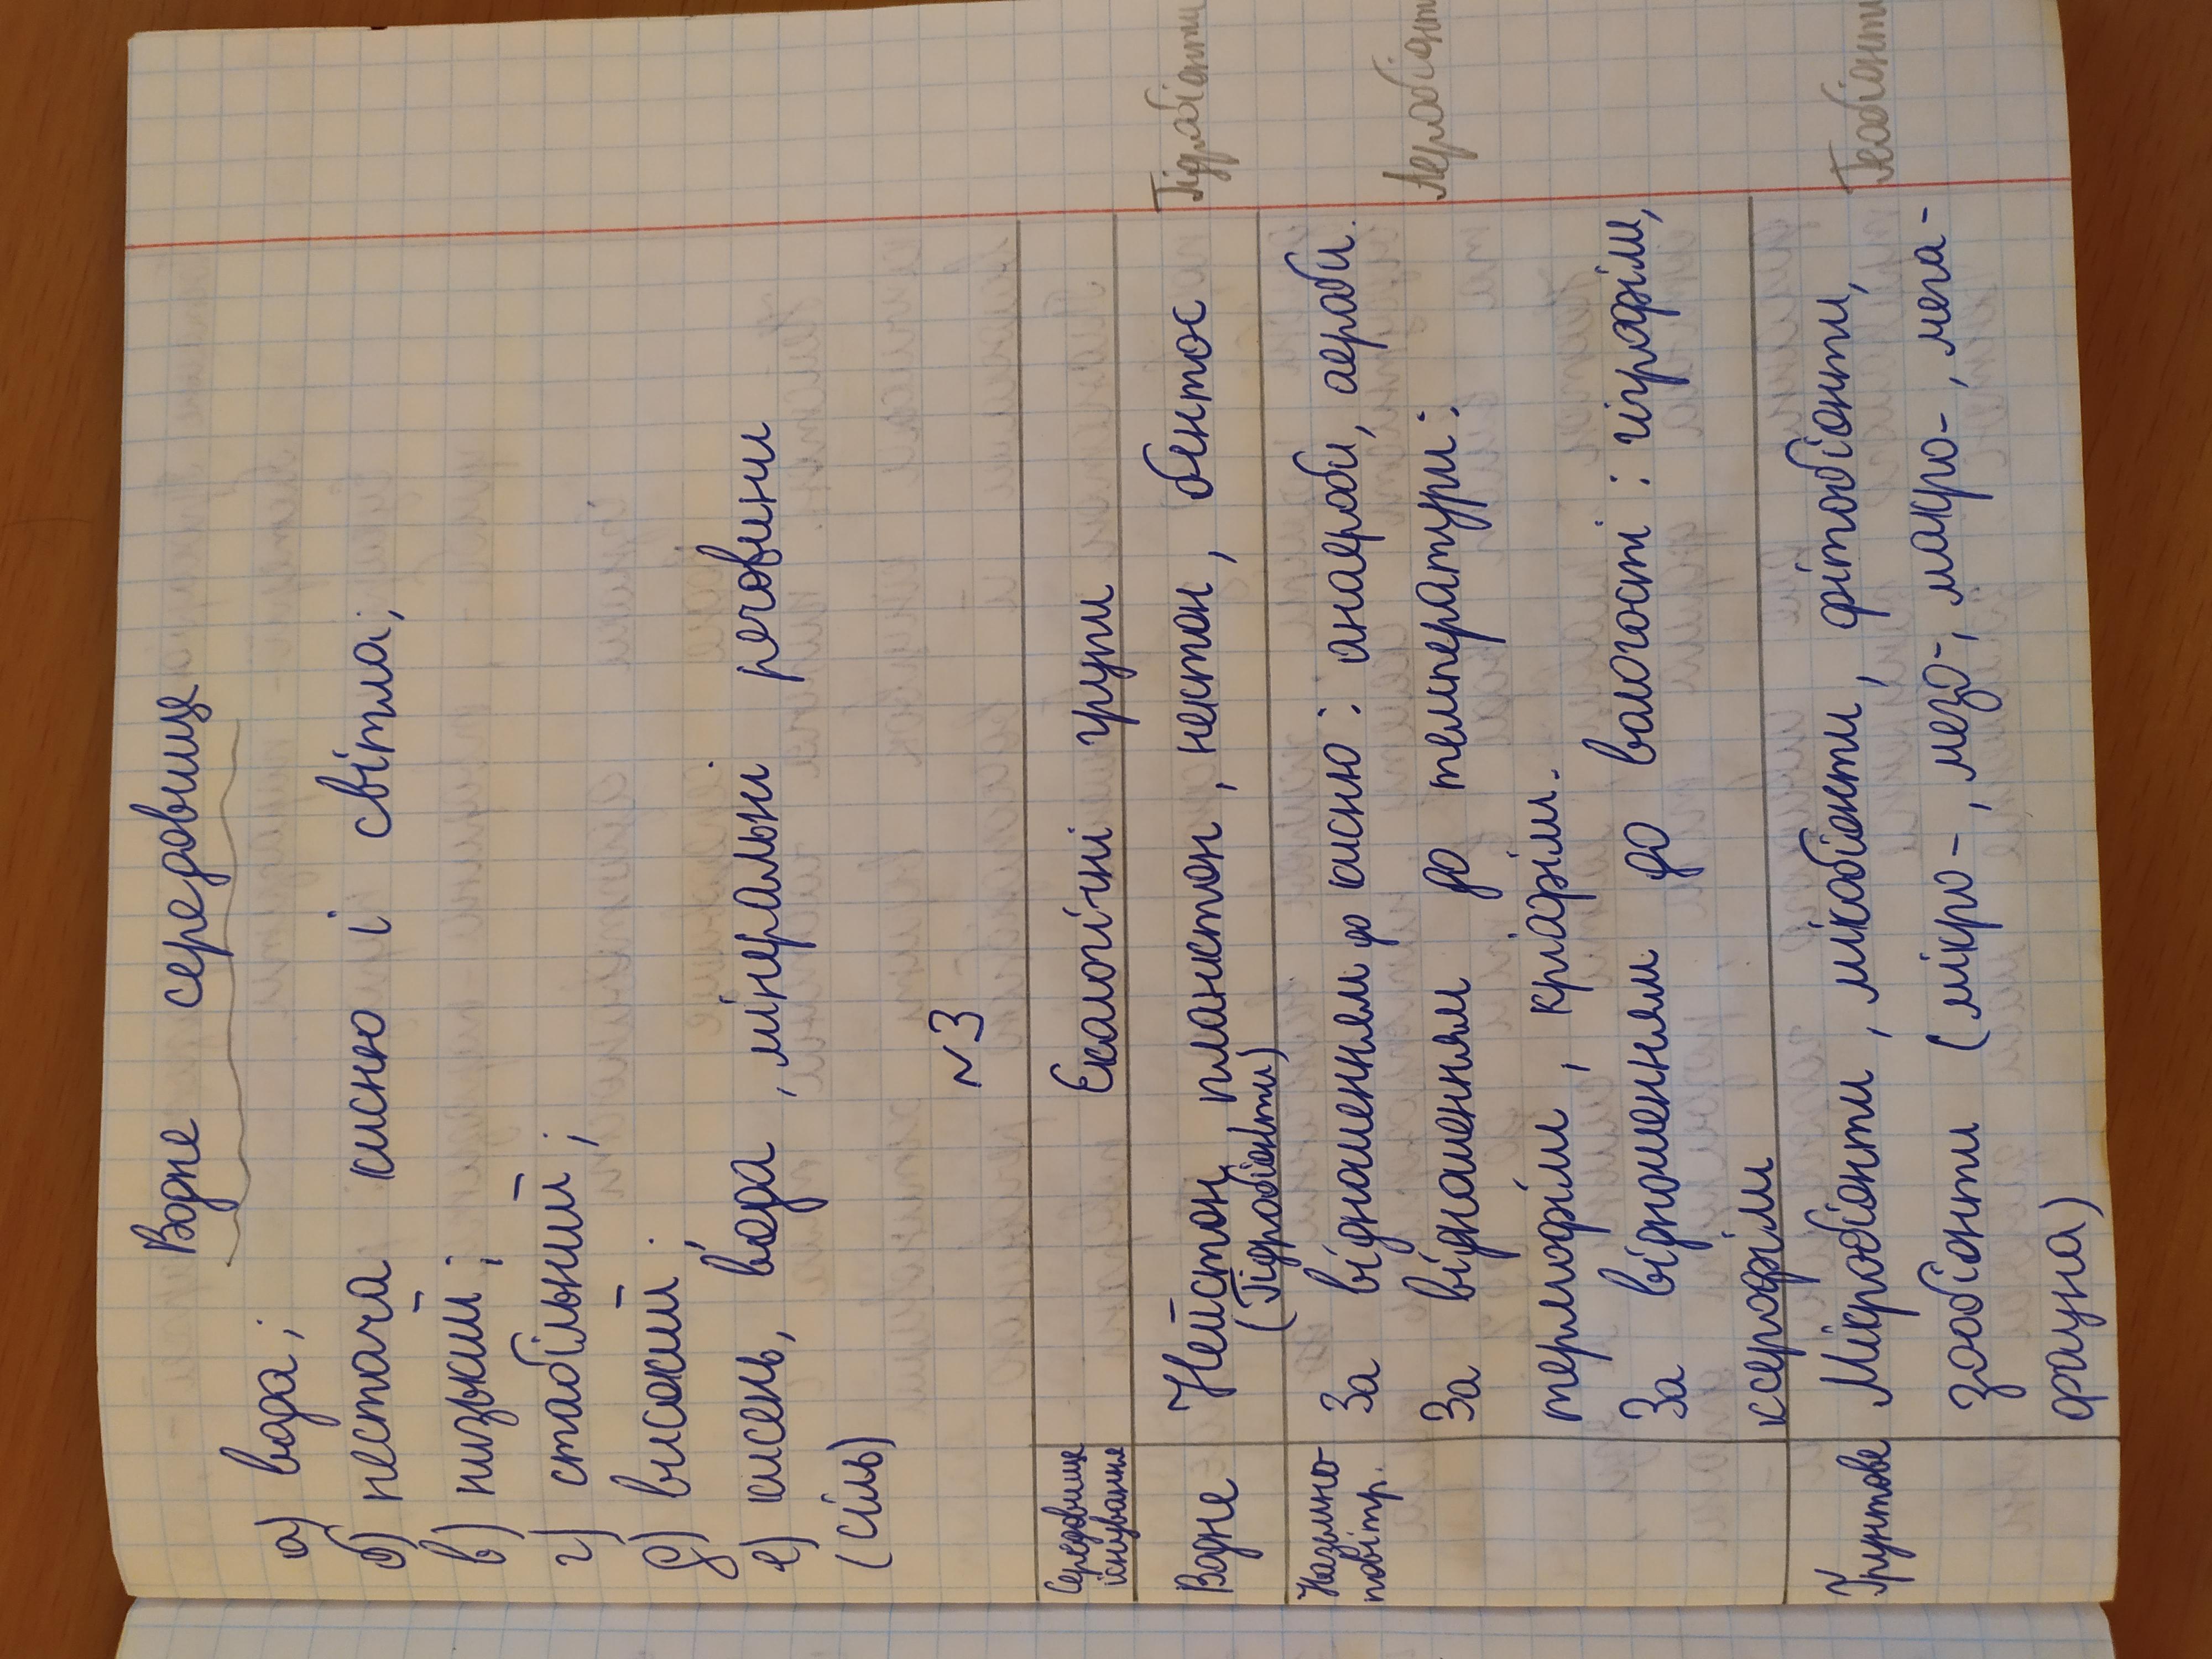 Водне середовище
а) вода;
б) нестача кисню і світла;
в) низький;
г) стабільний;
д) високий.
е) кисень, вода, мінеральні речовини
(сіль)
№3
Середовище існування
Екологічні групи
Водне
Нейстон, планктон, нектон, бентос
(Гідробіонти)
Гідробіонти
Наземно-повітр.
За відношенням до кисню: анаероби, аероби.
За відношенням до температури:
термофіли, кріофіли.
За відношенням до вологості: гігрофіли,
ксерофіли
Аеробіонти
Ґрунтове
Мікробіонти, мікобіонти, фітобіонти,
зообіонти (мікро-, мезо-, макро-, мега-
фауна)
Геобіонти